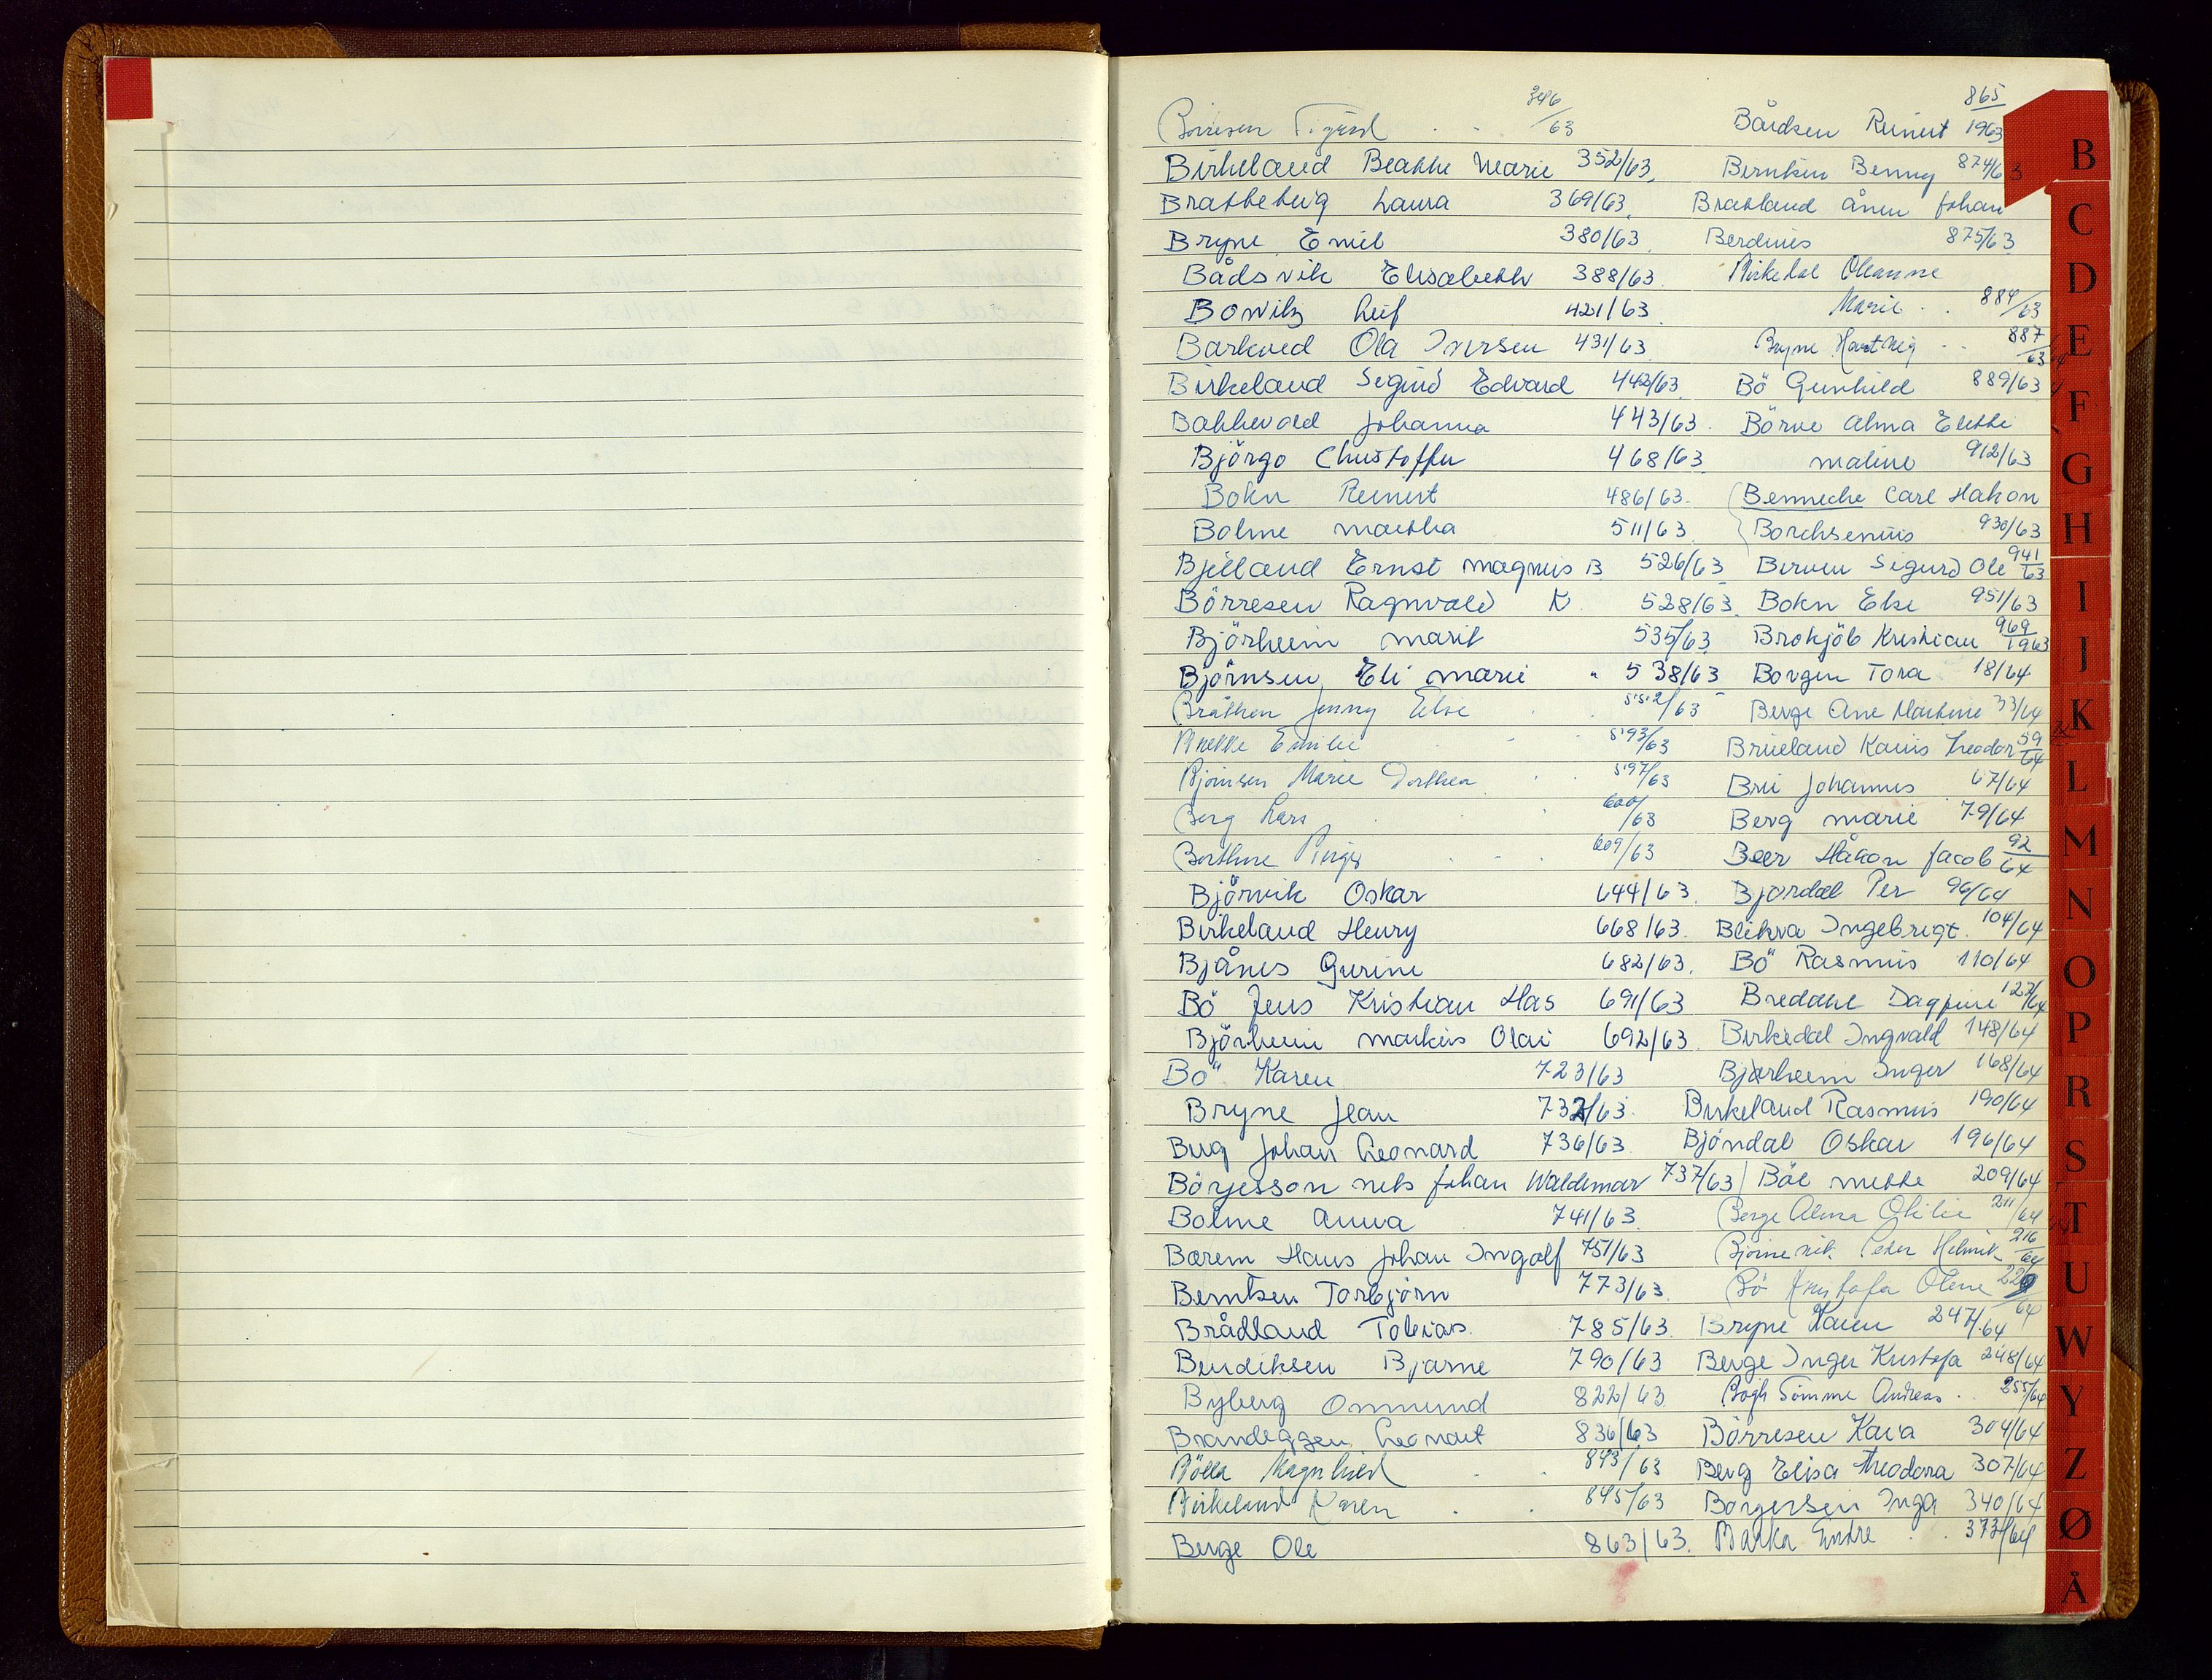 Börresen Sigurd 346/63
Birkeland Beathe Marie 352/63
Brattebeig Laura 369/63
Bryne Emil 380/63
Bådsvik Elisabeth 388/63
Bowitz Leif 421/63
Barkved Ola Iversen 431/63
Birkeland Sigurd Edvard 442/63
Bakkevold Johanna 443/63
Björgo Christoffer 468/63
Bokn Reinert 486/63
Bolme Martha 511/63
Bjelland Ernst Magnus B 526/63
Börresen Ragnvald K 528/63
Björheim Marit 535/63
Björnsen Eli Marie 538/63
Bråthen Jenny Else 552/63
Emilie 593/63
Björnsen Marie Dorthea 597/63
Berg Lars 600/63
Birger 609/63
Björvik Oskar 644/63
Birkeland Henry 668/63
Bjånes Gurine 682/63
Bö Jens Kristian Has 691/63
Björheim Markus Olai 692/63
Bö Karen 723/63
Bryne Jean 732/63
Berg Johan Leonard 736/63
Börjesson Nels Johan Waldemar 737/63
Bolme Anna 741/63
Bærem Hans Johan Ingolf 751/63
Berntsen Torbjörn 773/63
Brådland Tobias 785/63
Bendiksen Bjarne 790/63
Byberg Ommund 822/63
Brandeggen Leonart 836/63
Bölla Magnhild 843/63
Birkeland Karen 845/63
Berge Ole 863/63
Bårdsen Reinert 865/1963
Berntsen Benny 874/63
Bratland Ånen Johan
Berdines 875/63
Birkedal Oleanne
Marie 884/63
Bryne Hartvig 887/63
Bö Gunhild 889/63
Börve Alma Elethe
Maline 912/63
Bennecke Carl Hakon
Borchsenius 930/63
Berven Sigurd Ole 941/63
Bokn Else 951/63
Brokjöb Kristian 969/1963
Borgen Tora 18/64
Berge Ane Martine 33/64
Brueland Theodor 59/64
Brii Johannes 67/64
Berg Marie 79/64
Beer Håkon Jacob 92/64
Bjordal Per 96/64
Blikra Ingebrigt 104/64
Bö Rasmus 110/64
Bredahl Dagfinn 123/64
Birkedal Ingvald 148/64
Bjørheim Inger 168/64
Birkeland Rasmus 190/64
Bjöndal Oskar 196/64
Böe Mette 209/64
Berge Alma Otilie 211/64
Peder Helmik 216/64
Bö Kristofa Oline /64
Bryne Karen 247/64
Berge Inger Kristofa 248/64
Bögh Sömme Andreas 255/64
Börresen Kaia 304/64
Berg Elisa Theodora 307/64
Borgersen Inga 340/64
Barka Endre 373/64
B
C
D
E
F
G
H
I
J
K
L
M
N
O
P
R
S
T
U
W
Y
Z
Ø
Å